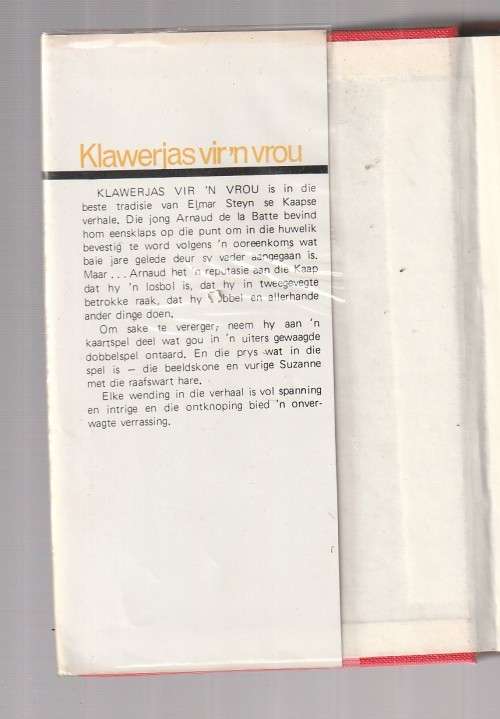 Klawerjas vir 'n vrou
KLAWERJAS VIR 'N VROU is in die
beste tradisie van Elmar Steyn se Kaapse
verhale. Die jong Arnaud de la Batte bevind
hom eensklaps op die punt om in die huwelik
bevestig te word volgens 'n ooreenkoms wat
baie jare gelede deur sy vader aangegaan is.
Maar . . . Arnaud het 'n reputasie aan die Kaap
dat hy 'n losbol is, dat hy in tweegevegte
betrokke raak, dat hy dobbel en allerhande
ander dinge doen.
Om sake te vererger, neem hy aan 'n
kaartspel deel wat gou in 'n uiters gewaagde
dobbelspel ontaard. En die prys wat in die
spel is — die beeldskone en vurige Suzanne
met die raafswart hare.
Elke wending in die verhaal is vol spanning
en intrige en die ontknoping bied 'n onver-
wagte verrassing.